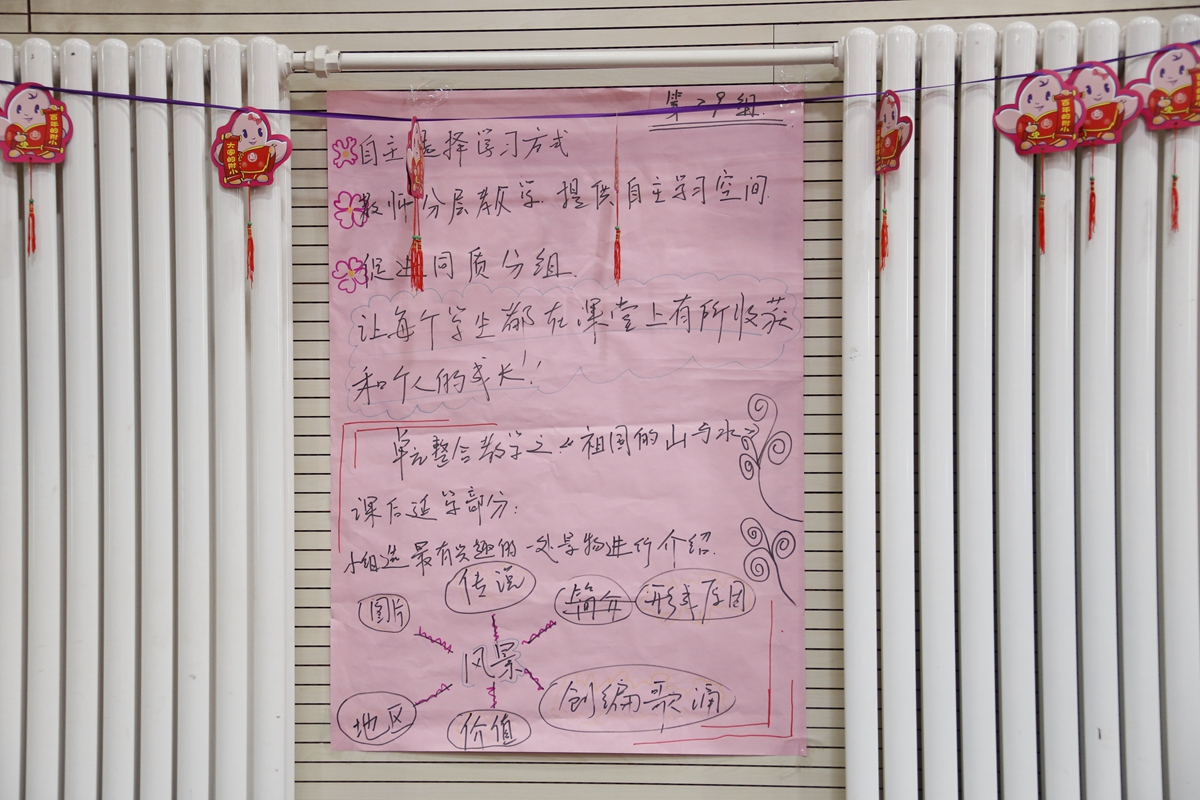 第29组.
自主选择学习方式
教师分层教学.提供自主学习空间.
促进同质分组.
让每个学生都在课堂上有所收获
和个人的成长!
单元整合教学之《祖国的山与水》
课后延学部分:
小组选最有兴趣的一处景物进行介绍.
传说
图片
简介
形成原因
风景
创编歌
地区
价值
百年的附小
大家的附小
百年的附小